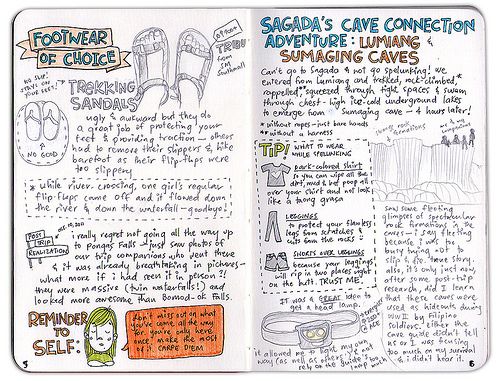 FOOTWEAR
OF CHOICE
NO SLIP!
STAYS ON
YOUR FEET!
TREKKING
SANDALS
TRIBU
from
Southmall
NO GOOD
ugly & awkward but they do
a great job of protecting your
feet & providing traction – others
had to remove their slippers & hike
barefoot as their flip-flops were
too slippery
* while river crossing, one girl's regular
flip-flops came off and it flowed down
the river & down the waterfall – goodbye!
POST
TRIP
REALIZATION
i really regret not going all the way up
to Pongas Falls – just saw photos of
our trip companions who went there
& it was already breathtaking in pictures –
what more if i had seen it in person?!
they were massive (twin waterfalls!) and
looked more awesome than Bomod-ok Falls.
REMINDER
TO
SELF:
don't miss out on what
you've come all the way
for. you're only here
once! make the most
of it. CARPE DIEM
5
SAGADA'S CAVE CONNECTION
ADVENTURE: LUMIANG &
SUMAGING CAVES
Can't go to Sagada & not go spelunking! we
entered from Lumiang and trekked, rock-climbed,*
rappelled,** squeezed through tight spaces & swam
through chest-high ice-cold underground lakes
to emerge from Sumaging cave – 4 hours later!
* without ropes – just bare hands
** without a harness
TIP!
WHAT TO WEAR
WHILE SPELUNKING
dark-colored shirt
so you can wipe all the
dirt, mud & bat poop all
over your shirt and not look
like a taong grasa
LEGGINGS
to protect your flawless
legs from scratches &
cuts from the rocks
SHORTS OVER LEGGINGS
because your leggings
will rip in two places right
on the butt. TRUST ME!
It was a GREAT idea to
get a head lamp.
it allowed me to light my own
way (as well as others') & not
rely on the guide's
rock
formations
saw some fleeting
glimpses of spectacular
rock formations in the
caves – i say fleeting
because i was too
busy trying not to
slip & die. true story.
also, it's only just now,
after some post-trip
research, did i learn
that these caves were
used as hideouts during
WW II by Filipino
soldiers! either the
cave guide didn't tell
us or i was focusing
too much on my survival
& i didn't hear it.
6